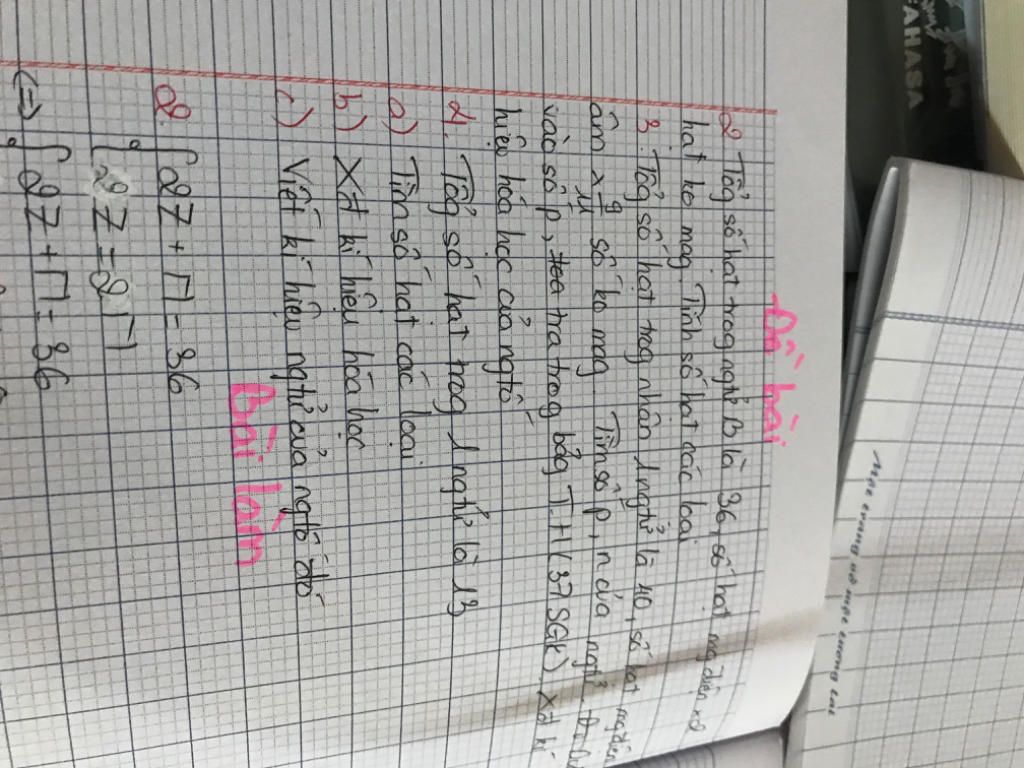 Đề bài
2. Tổng số hạt trog ngtử B là 36, số hạt mg điện x2
hạt ko mag. Tính số hạt các loại
3. Tổng số hạt trog nhân 1 ngtử là 40, số hạt
âm x số ko mag Tìm số p, n của ngtử.
vào số p, tra trog bảg T.H (37 SGK). Xđ kí
hiệu hóa học của ngtố
4. Tổng số hạt trog 1 ngtử là 13
a) Tìm số hạt các loại
b) Xđ kí hiệu hóa học
c) Viết kí hiệu ngtử của ngtố đó
Bài làm
2. 2Z + n = 36
2Z = 2n
<=> 2Z + n = 36
AHASA